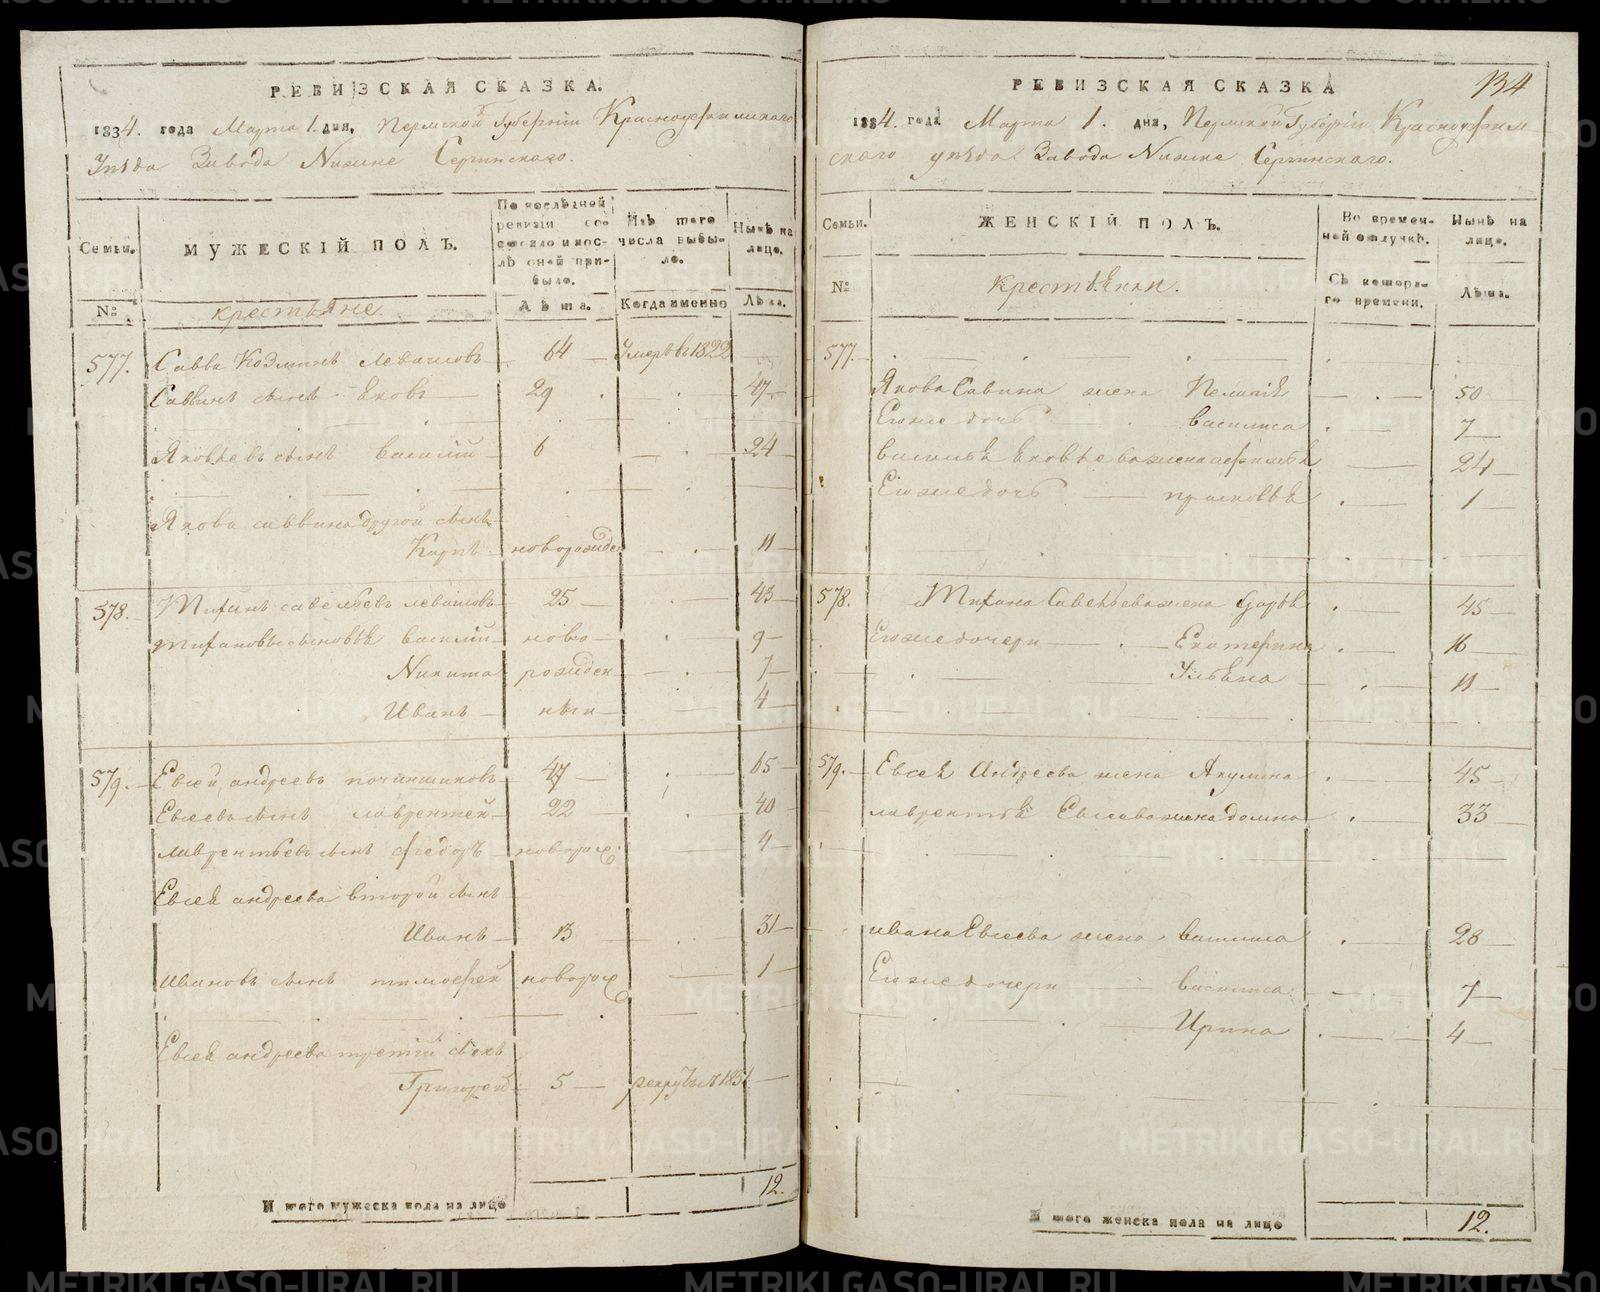 РЕВИЗСКАЯ СКАЗКА.
1834. года Марта 1. дня, Пермской Губерніи Красноуфимскаго
Уѣзда Завода Нижне Сергинскаго.
Семьи.
МУЖЕСКІЙ ПОЛЪ.
По послѣдней ревизіи состояло и послѣ оной прибыло.
Изъ того числа выбыло.
Нынѣ на лицо.
№
крестьяне
Лѣта.
Когда именно
Лѣта.
577. Савва Козминъ Левашовъ 64 Умеръ въ 1822
Саввинъ сынъ Яковъ 29 47
Яковлевъ сынъ Василій 6 24
Якова Саввина другой сынъ
Карпъ новорожден 11
578. Титанъ Савельевъ Левашовъ 25 43
Титановы сыновья Василій ново 9
Никита рожден 7
Иванъ ныи 4
579. Евсей Андреевъ Починщиковъ 47 65
Евсеевъ сынъ Лаврентей 22 40
Лаврентьевъ сынъ Федоръ новорож 4
Евсея Андреева второй сынъ
Иванъ 13 31
Ивановъ сынъ Тимофей новорож 1
Евсея Андреева третій сынъ
Григорей 5 рекрутъ в 1831
Итого мужеска пола на лицо 12.
134
РЕВИЗСКАЯ СКАЗКА
1834. года Марта 1. дня, Пермской Губерніи Красноуфим
скаго уѣзда Завода Нижне Сергинскаго.
Семьи.
ЖЕНСКІЙ ПОЛЪ.
Во временной отлучкѣ.
Нынѣ на лицо.
№
крестьянки.
Съ котораго времени.
Лѣта.
577.
Якова Савина жена Пелагія 50
Егоже дочь Василиса 7
Василья Яковлева жена Афимья 24
Егоже дочь Прасковья 1
578. Титана Савельева жена Дарья 45
Егоже дочери Екатерина 16
Ульяна 11
579. Евсея Андреева жена Акулина 45
Лаврентья Евсеева жена Домна 33
Ивана Евсеева жена Василиса 28
Егоже дочери Василиса 7
Ирина 4
Итого женска пола на лицо 12.
METRIKI.GASO-URAL.RU